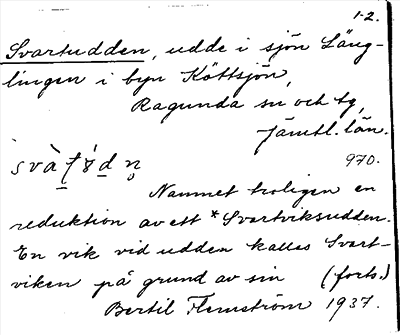 1-2.
Svartudden, udde i sjön Läng-
lingen i byn Köttsjön,
Ragunda sn och tg,
Jämtl. län.
970.
Namnet troligen en
reduktion av ett *Svartviksudden.
En vik vid udden kallas Svart-
viken på grund av sin (forts.)
Bertil Flemström 1937.